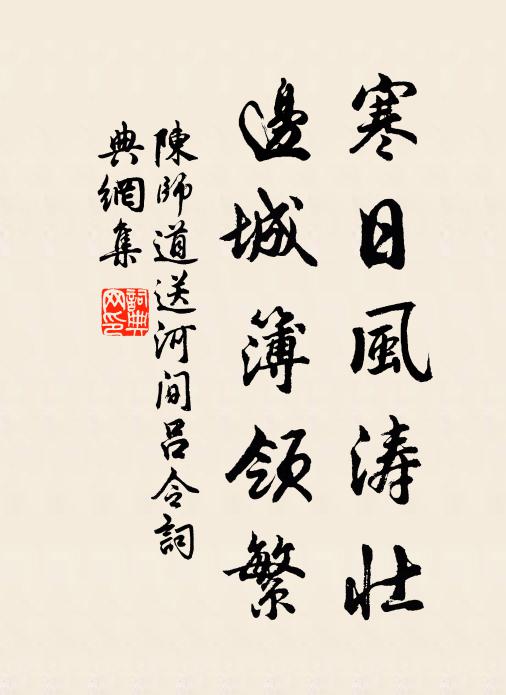 寒日風涛壯
邊城簿領繁
陳師道送河间呂令詞
典網集
詞典网印